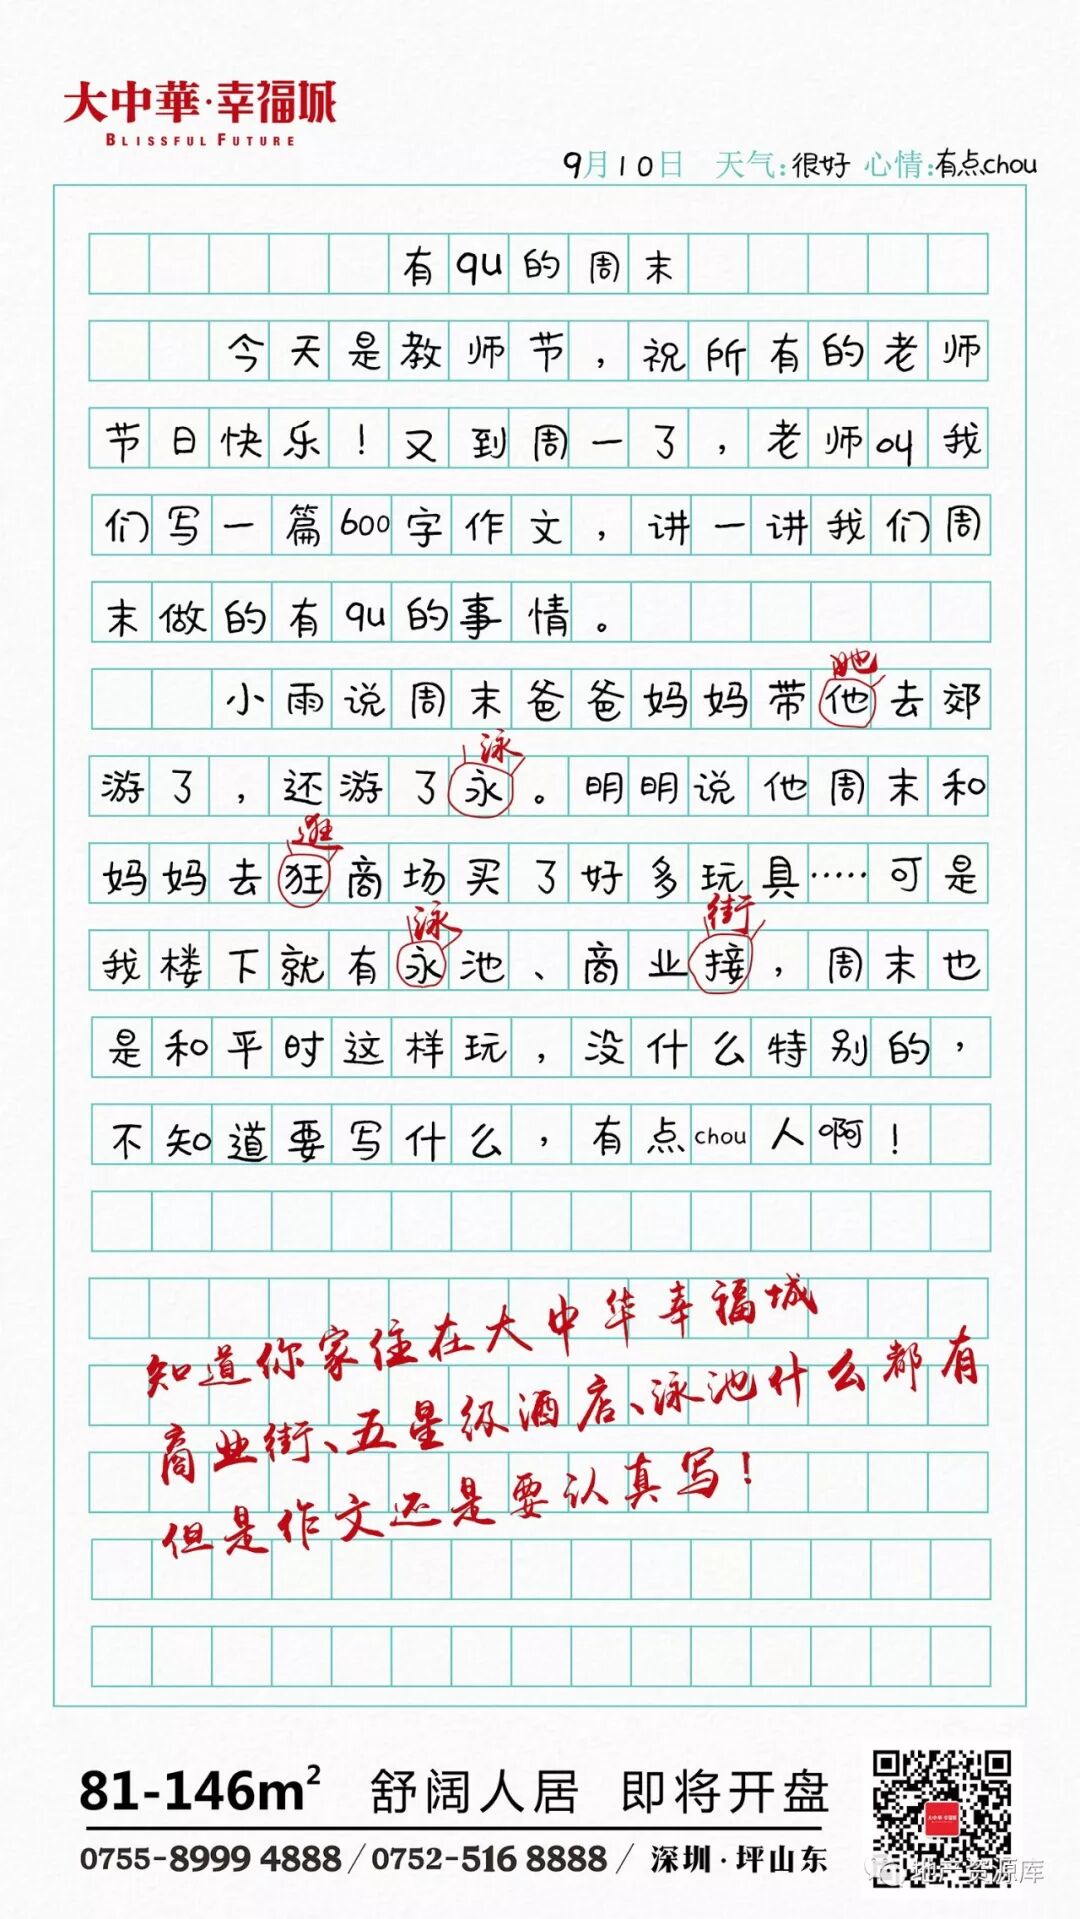 大中華·幸福城
BLISSFUL FUTURE
9月10日 天气:很好 心情:有点chou
有qu的周末
今天是教师节，祝所有的老师
节日快乐！又到周一了，老师叫我
们写一篇600字作文，讲一讲我们周
末做的有qu的事情。
她
小雨说周末爸爸妈妈带他去郊
泳
游了，还游了永。明明说他周末和
逛
妈妈去狂商场买了好多玩具……可是
泳 街
我楼下就有永池、商业接，周末也
是和平时这样玩，没什么特别的，
不知道要写什么，有点chou人啊！
知道你家住在大中华幸福城
商业街、五星级酒店、泳池什么都有
但是作文还是要认真写！
81-146m² 舒阔人居 即将开盘
0755-8999 4888/0752-516 8888/深圳·坪山东
大中華·幸福城
地产资源库